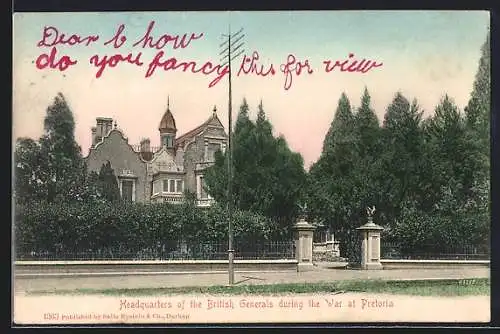 Dear b how
do you fancy this for view
Headquarters of the British Generals during the War at Pretoria
Published by Sallo Epstein & Co., Durban